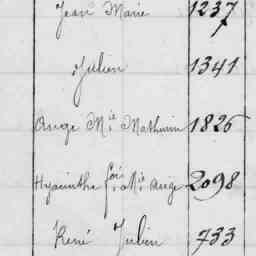 Jean Marie 1237
Julien 1341
Ange M.ie Mathurin 1826
Hyacinthe fois M.ie Ange 2098
René Julien 733